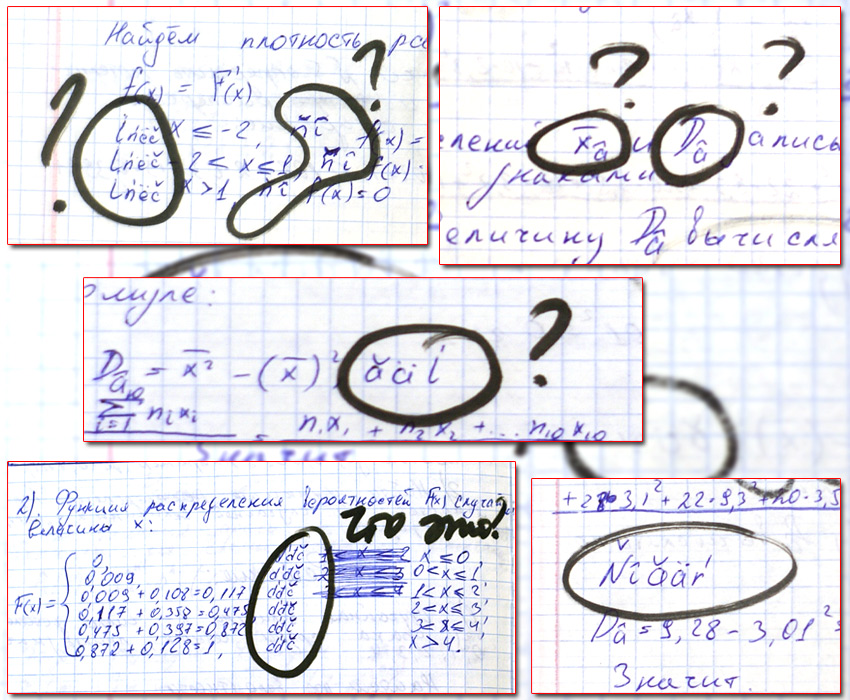 Найдём плотность ра
f(x) = F'(x)
x ≤ -2, f(x) =
-2 < x ≤ 1, ňî f(x) =
x > 1, ňî f(x) = 0
? ?
? ?
делений x̄â и Dâ запись
знаками.
величину Dâ вычисля
рмуле:
Dâ = x̄² - (x̄)² ăäĺ ?
∑ nᵢxᵢ n₁x₁ + n₂x₂ + ... n₁₀x₁₀
i=1
Значит
2). Функция распределения вероятностей F(x) случай
величины x:
Что это?
0, ďđč x ≤ 0
0,009, ďđč 0 < x ≤ 1
0,009 + 0,108 = 0,117 ďđč 1 < x ≤ 2
F(x) = 0,117 + 0,358 = 0,475 ďđč 2 < x ≤ 3
0,475 + 0,397 = 0,872 ďđč 3 < x ≤ 4,
0,872 + 0,128 = 1, ďđč x > 4.
3,1² + 22·9,3² + 20·3,5
Ňîăäŕ
Dâ = 9,28 - 3,01² =
Значит.